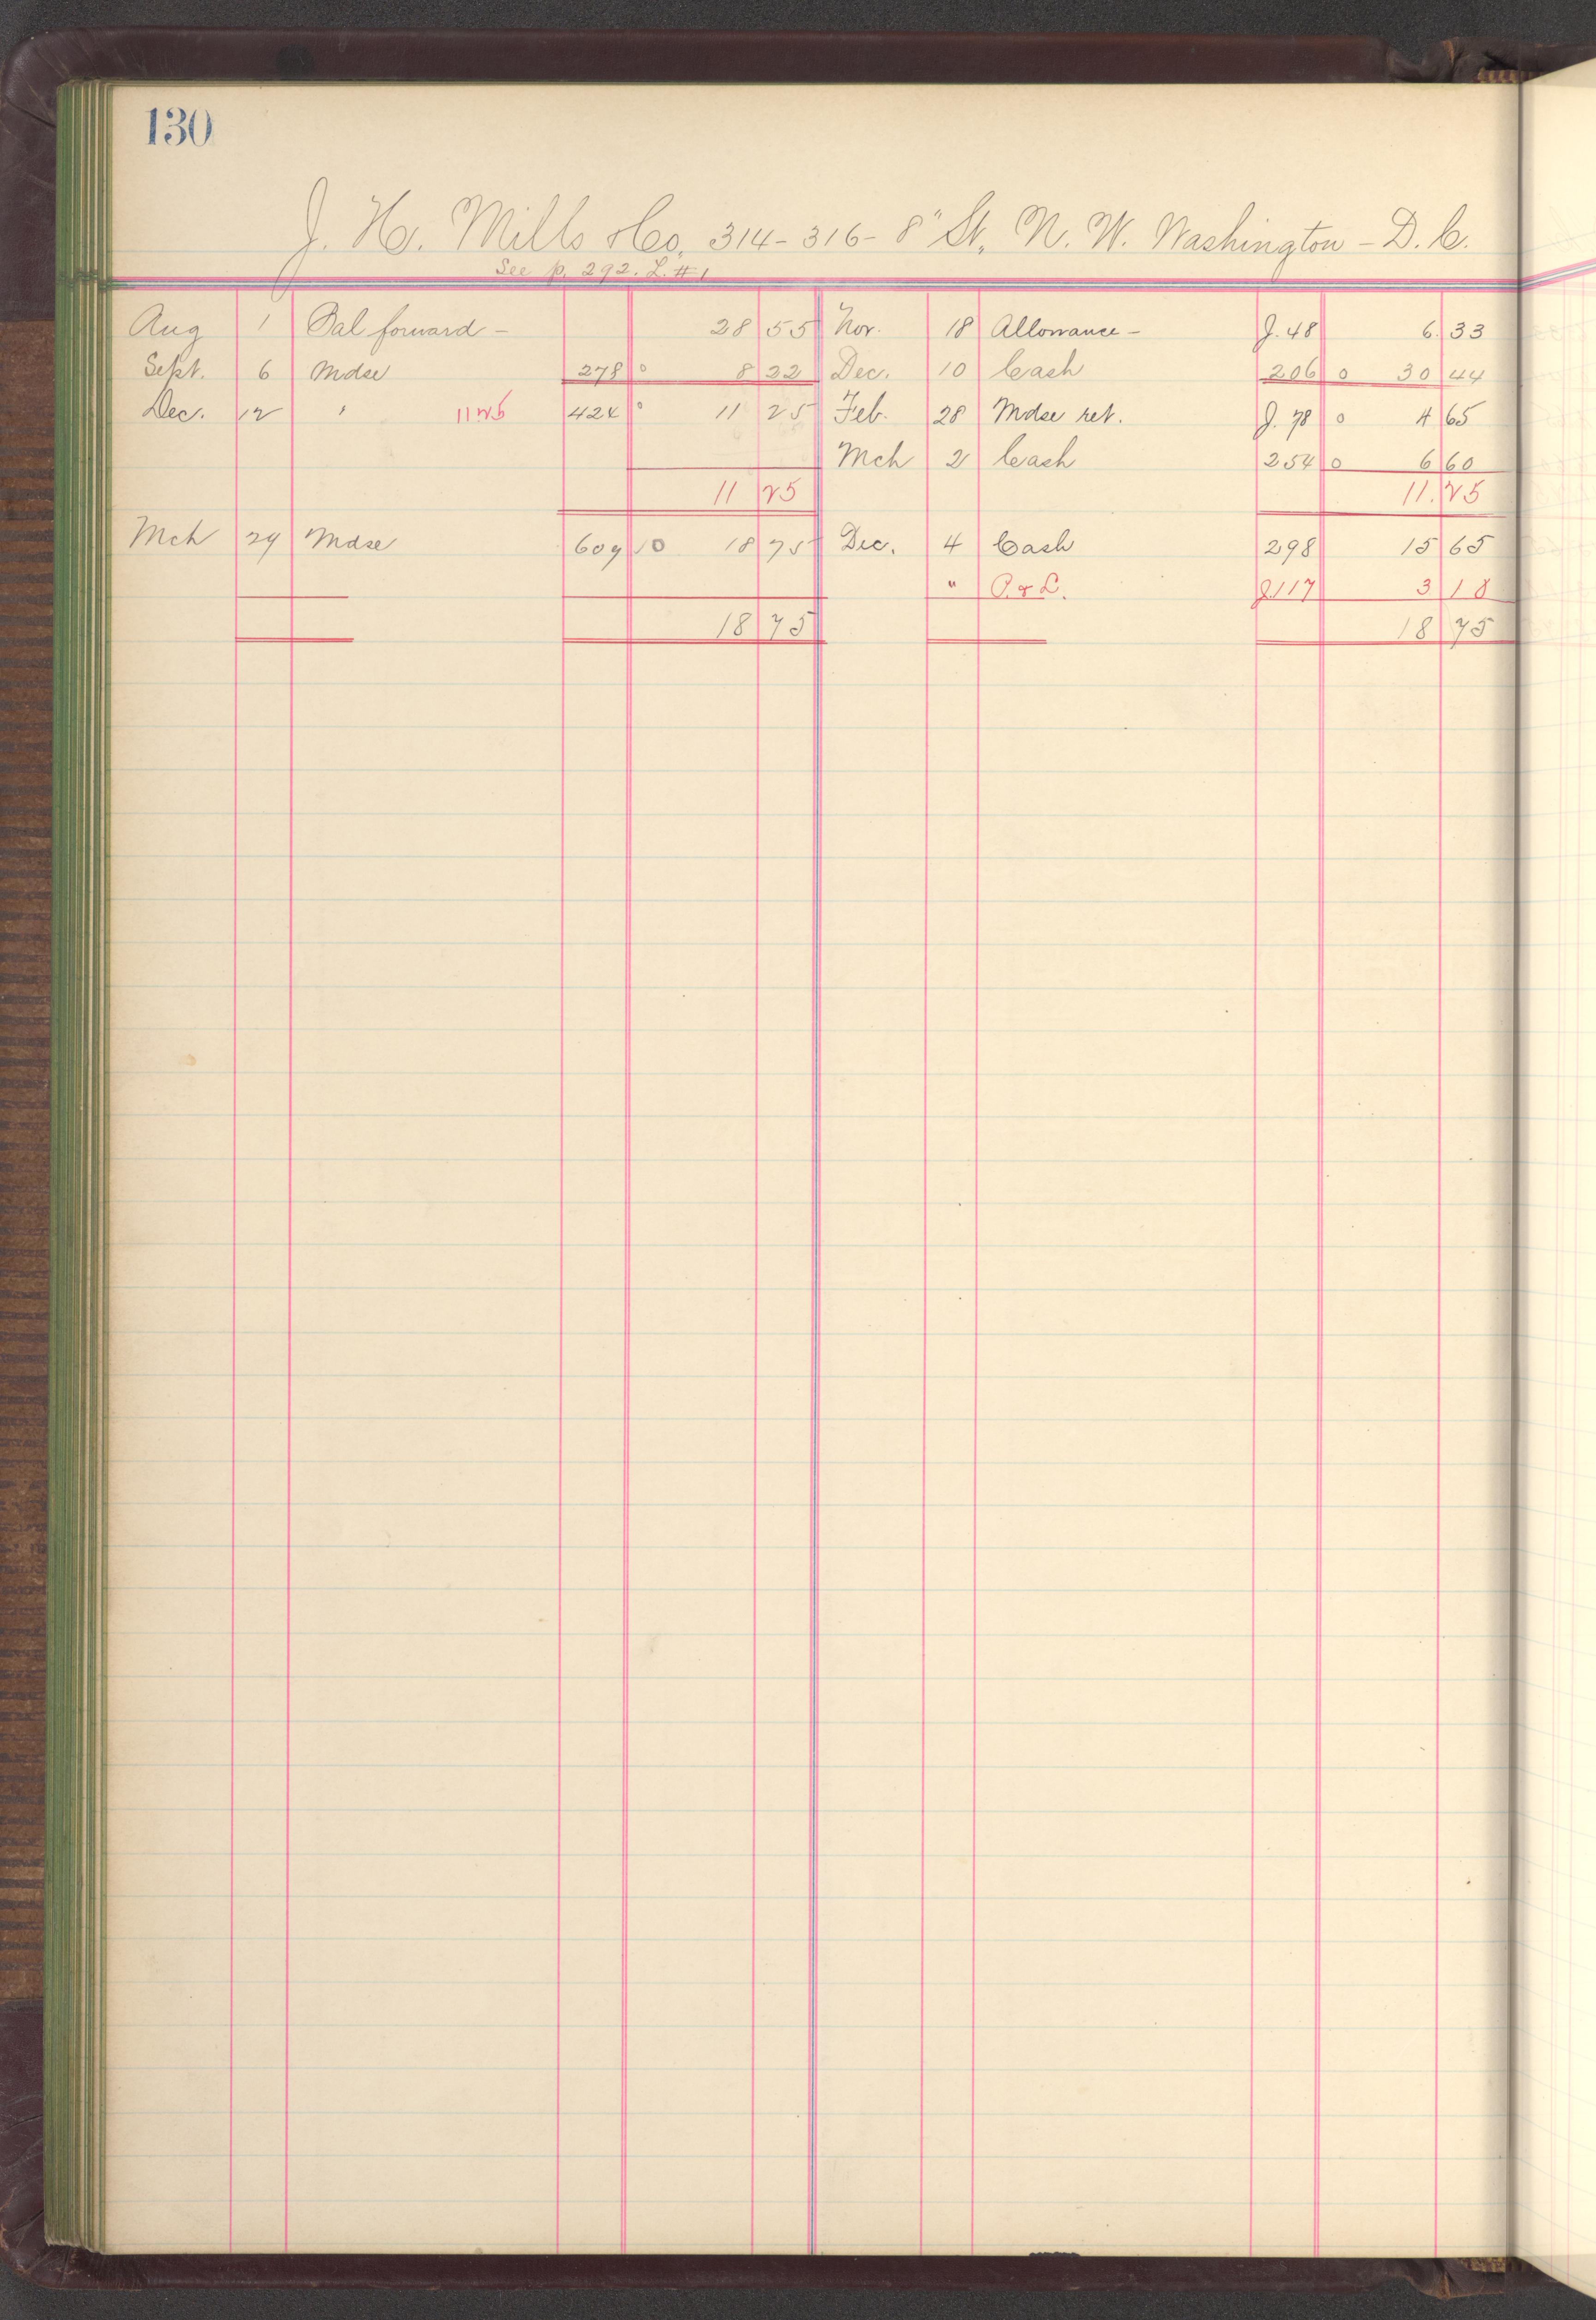 130
J. H. Mills & Co., 314-316-8" St., N. W. Washington - D. C.
See p. 292. L. #1
Aug 1 Bal forward - 28 55 Nov. 18 Allowance - J. 48 6. 33
Sept. 6 Mdse 278 0 8 22 Dec. 10 Cash 206 0 30 44
Dec. 12 " 11 25 424 0 11 25 Feb. 28 Mdse ret. J. 78 0 4 65
Mch 2 Cash 254 0 6 60
11 25 11. 25
Mch 24 Mdse 609 0 18 75 Dec. 4 Cash 298 15 65
" P. & L. J117 3 10
18 75 18 75